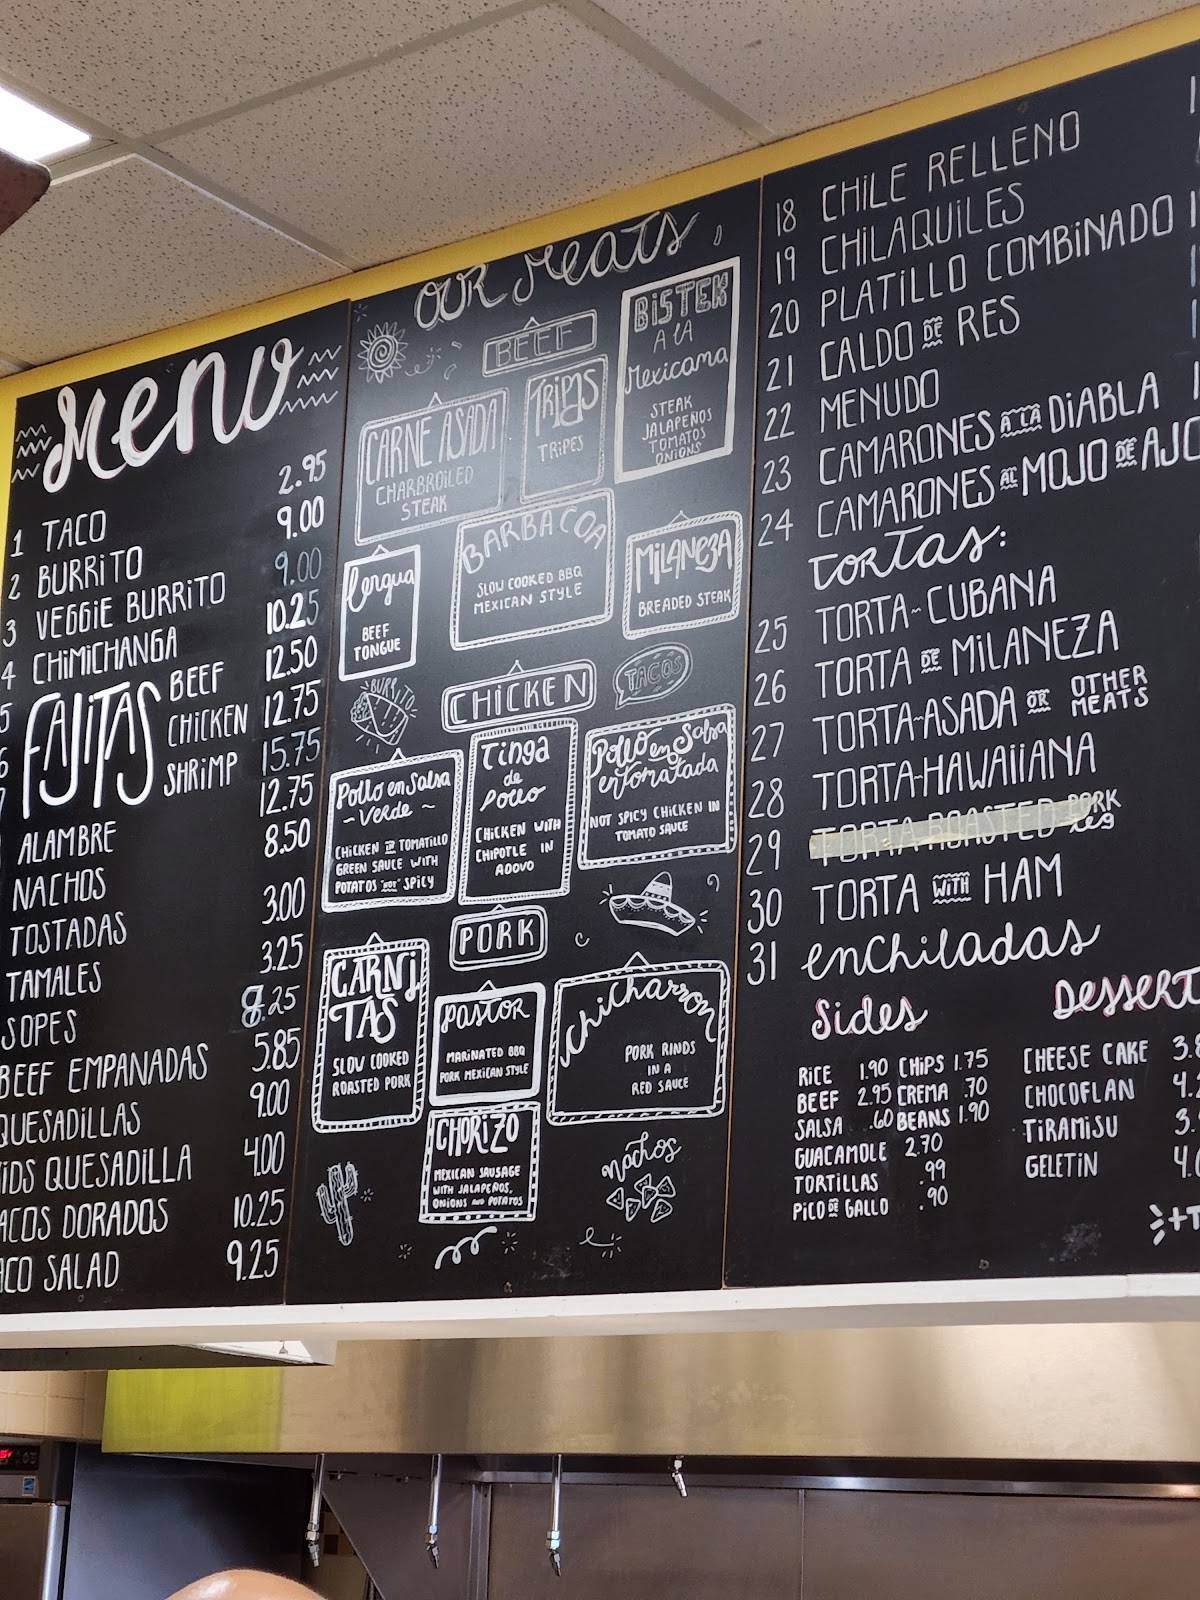 Menu
1 TACO 2.95
2 BURRITO 9.00
3 VEGGIE BURRITO 9.00
4 CHIMICHANGA 10.25
5 FAJITAS BEEF 12.50
CHICKEN 12.75
SHRIMP 15.75
ALAMBRE 12.75
NACHOS 8.50
TOSTADAS 3.00
TAMALES 3.25
SOPES
BEEF EMPANADAS 5.85
QUESADILLAS 9.00
KIDS QUESADILLA 4.00
TACOS DORADOS 10.25
TACO SALAD 9.25
OUR Meats
BEEF
CARNE ASADA
CHARBROILED
STEAK
TRIPAS
TRIPES
BISTEK
A LA
Mexicana
STEAK
JALAPEÑOS
TOMATOS
ONIONS
Lengua
BEEF
TONGUE
BARBACOA
SLOW COOKED BBQ
MEXICAN STYLE
MILANEZA
BREADED STEAK
BURRITO
CHICKEN
TACOS
Pollo en Salsa
~ Verde ~
CHICKEN IN TOMATILLO
GREEN SAUCE WITH
POTATOS "NOT" SPICY
Tinga
de
Pollo
CHICKEN WITH
CHIPOTLE IN
ADOVO
Pollo en Salsa
entomatada
NOT SPICY CHICKEN IN
TOMATO SAUCE
PORK
CARNI
TAS
SLOW COOKED
ROASTED PORK
PASTOR
MARINATED BBQ
PORK MEXICAN STYLE
Chicharron
PORK RINDS
IN A
RED SAUCE
CHORIZO
MEXICAN SAUSAGE
WITH JALAPEÑOS,
ONIONS AND POTATOS
nachos
18 CHILE RELLENO
19 CHILAQUILES
20 PLATILLO COMBINADO
21 CALDO DE RES
22 MENUDO
23 CAMARONES A LA DIABLA
24 CAMARONES AL MOJO DE AJO
TORTAS:
25 TORTA~CUBANA
26 TORTA DE MILANEZA
27 TORTA~ASADA OR OTHER MEATS
28 TORTA~HAWAIIANA
29 TORTA ROASTED PORK leg
30 TORTA WITH HAM
31 enchiladas
Sides
RICE 1.90 CHIPS 1.75
BEEF 2.95 CREMA .70
SALSA .60 BEANS 1.90
GUACAMOLE 2.70
TORTILLAS .99
PICO DE GALLO .90
DESSERT
CHEESE CAKE
CHOCOFLAN
TIRAMISU
GELETIN